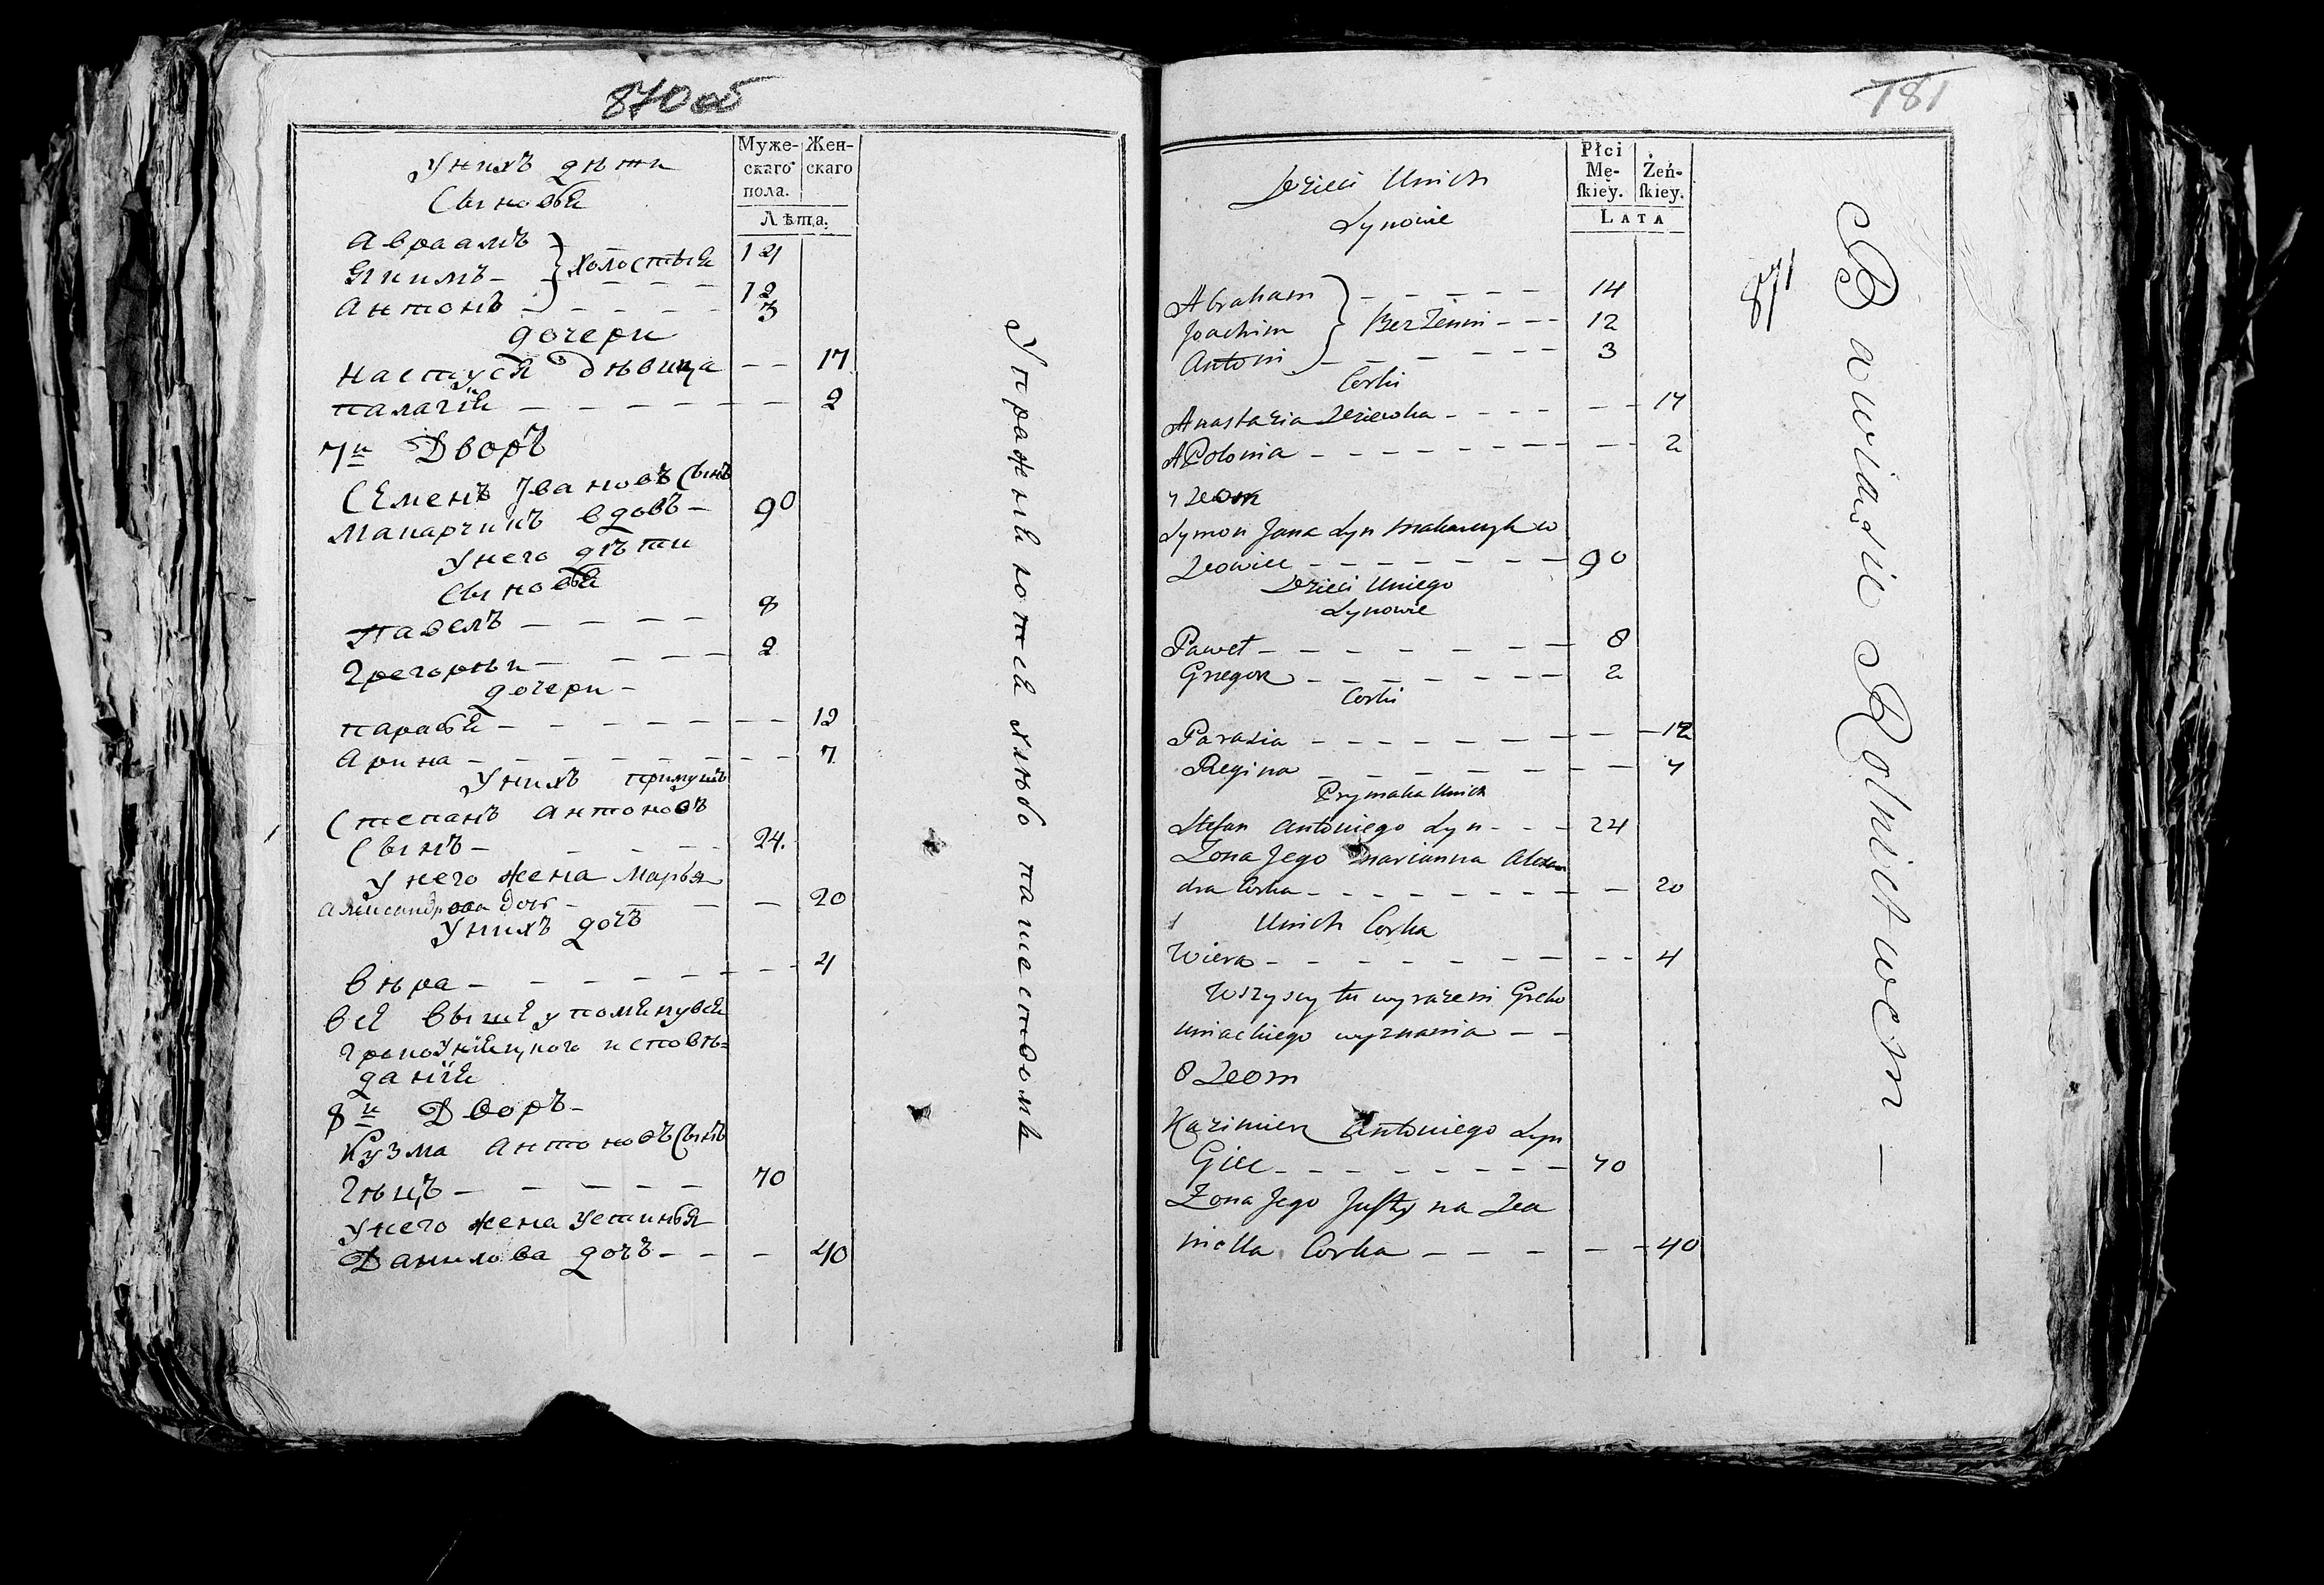 870 об
Муже- Жен-
скаго скаго
пола.
Лѣта.
Унихъ дѣти
Сыновья
Авраамъ 14
Якимъ - холостыя 12
Антонъ - 3
дочери
Настуся дѣвица - - 17
Палагия - 2
7й Дворъ
Семенъ Ивановъ Сынъ
Макарчикъ вдовъ - 90
Унего дѣти
Сыновья
Павелъ - 8
Грегорѣй - 2
дочери -
Парася - 12
Арина - 7
Унихъ примушъ
Степанъ Антоновъ
Сынъ - 24.
Унего жена Марья
Александрова доч - 20
Унихъ дочъ
Вѣра - 4
Всѣ выше упомянутыя
исповѣ=
данія
8й Дворъ -
Кузма Антоновъ Сынъ
Гѣцъ - 70
Унего жена Устинья
Данилова дочъ - - - 40
Упражняются хлѣбопашествомъ
181
871
Płci
Mę- Żeń-
ſkiey. ſkiey.
LATA
Dzieci Unich
Synowie
Abraham - 14
Joachim Bezżenni - 12
Antoni - 3
Corki
Anastazia Dziewka - 17
APolonia - 2
7 Dom
Symon Jana Syn Makarczyk w
Dowiec - 90
Dzieci Uniego
Synowie
Paweł - 8
Grzegorz - 2
Corki
Parasia - 12
Regina - 7
Prymaka Unich
Stefan Antoniego Syn - 24
Zona Jego Marianna Alexan
dra Corka - 20
Unich Corka
Wiera - 4
Wszyscy tu wyrażeni Greko
Uniackiego wyznania - -
8 Dom
Kazimierz Antoniego Syn
Giec - 70
Zona Jego Juſtyna Da
niella Corka - 40
Bawią się Rolnictwem -